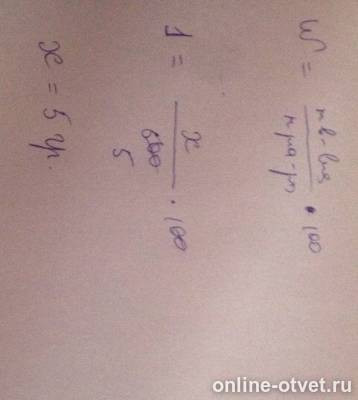 W = m в-ва / m р-ра · 100
1 = x / 500 · 100
5
x = 5 гр.
online-otvet.ru